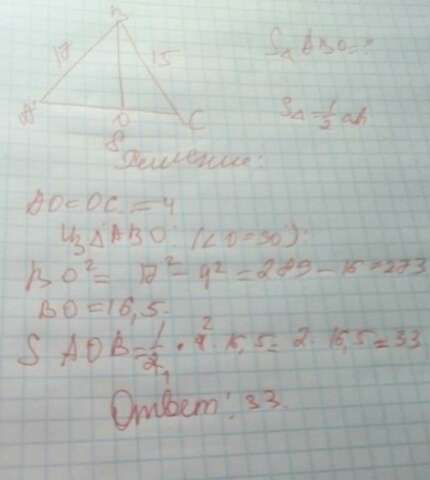 B
17 15
S△ABO=?
A O C
8
S△=1/2 ah
Решение:
AO=OC=4
Из △ABO: (∠O=90):
BO²= 17²-4²=289-16=273
BO=16,5.
S AOB=1/2 · 4 · 16,5= 2 · 16,5=33
Ответ: 33.